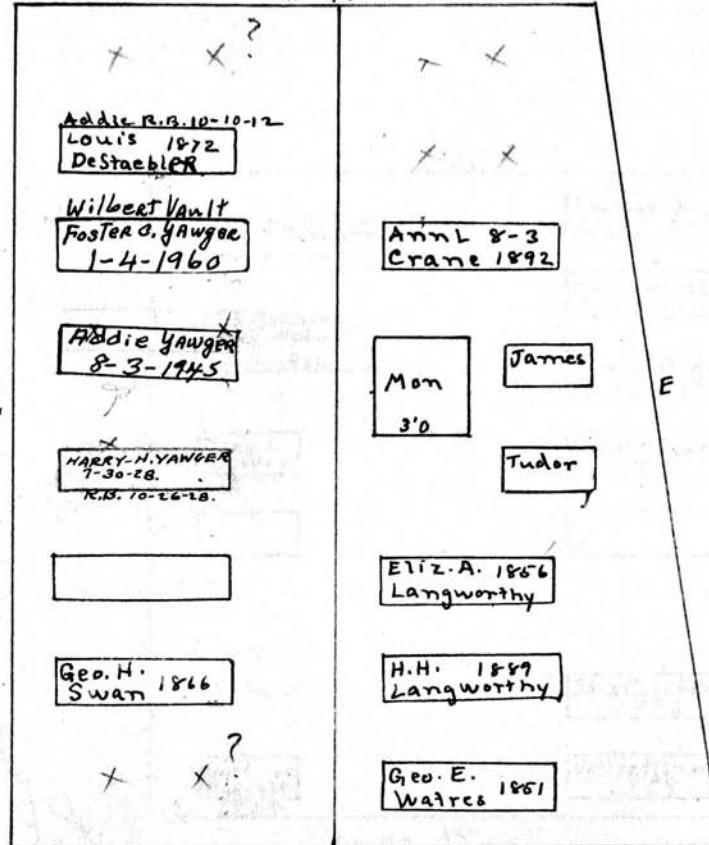 ?
Addie R.B. 10-10-12
Louis 1872
DeStaebler
Wilbert Vault
Foster C. Yawger
1-4-1960
Addie Yawger
8-3-1945
HARRY-H. YAWGER
7-30-28.
R.B. 10-26-28.
Geo. H.
Swan 1866
?
Ann L 8-3
Crane 1892
Mon
3'0
James
Tudor
E
Eliz. A. 1856
Langworthy
H.H. 1889
Langworthy
Geo. E.
Watres 1851